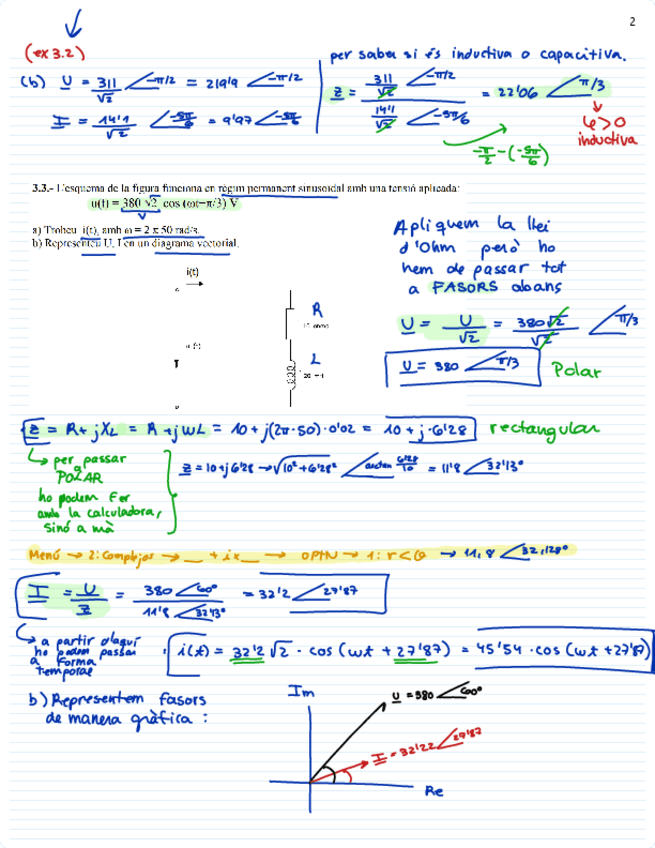 2
(ex 3.2)
(b) U = 311/√2 ∠-π/2 = 219'9 ∠-π/2
I = 14'1/√2 ∠-5π/6 = 9'97 ∠-5π/6
per saber si és inductiva o capacitiva.
Z = (311/√2 ∠-π/2) / (14'1/√2 ∠-5π/6) = 22'06 ∠π/3
φ>0
inductiva
-π/2 - (-5π/6)
3.3.- L'esquema de la figura funciona en règim permanent sinusoidal amb una tensió aplicada:
u(t) = 380 √2 cos (ωt−π/3) V
a) Trobeu i(t), amb ω = 2 π 50 rad/s.
b) Representeu U, I en un diagrama vectorial.
i(t)
R
L
Apliquem la llei
d'Ohm però ho
hem de passar tot
a FASORS abans
U = U/√2 = 380√2/√2 ∠π/3
U = 380 ∠π/3
Polar
Z = R + jXL = R + jωL = 10 + j(2π·50)·0'02 = 10 + j·6'28
rectangular
per passar
a POLAR
ho podem fer
amb la calculadora,
sinó a mà
Z = 10+j6'28 → √10²+6'28² ∠arctan 6'28/10 = 11'8 ∠32'13°
Menú → 2: Complejos → _ + i x _ → OPTN → 1: r<θ → 11,8 ∠32,128°
I = U/Z = 380 ∠60° / 11'8 ∠32'13° = 32'2 ∠27'87
a partir d'aquí
ho podem passar
a forma
temporal
i(t) = 32'2 √2 · cos (ωt + 27'87) = 45'54 · cos (ωt + 27'87)
b) Representem fasors
de manera gràfica :
Im
U = 380 ∠60°
I = 32'22 ∠27'87
Re